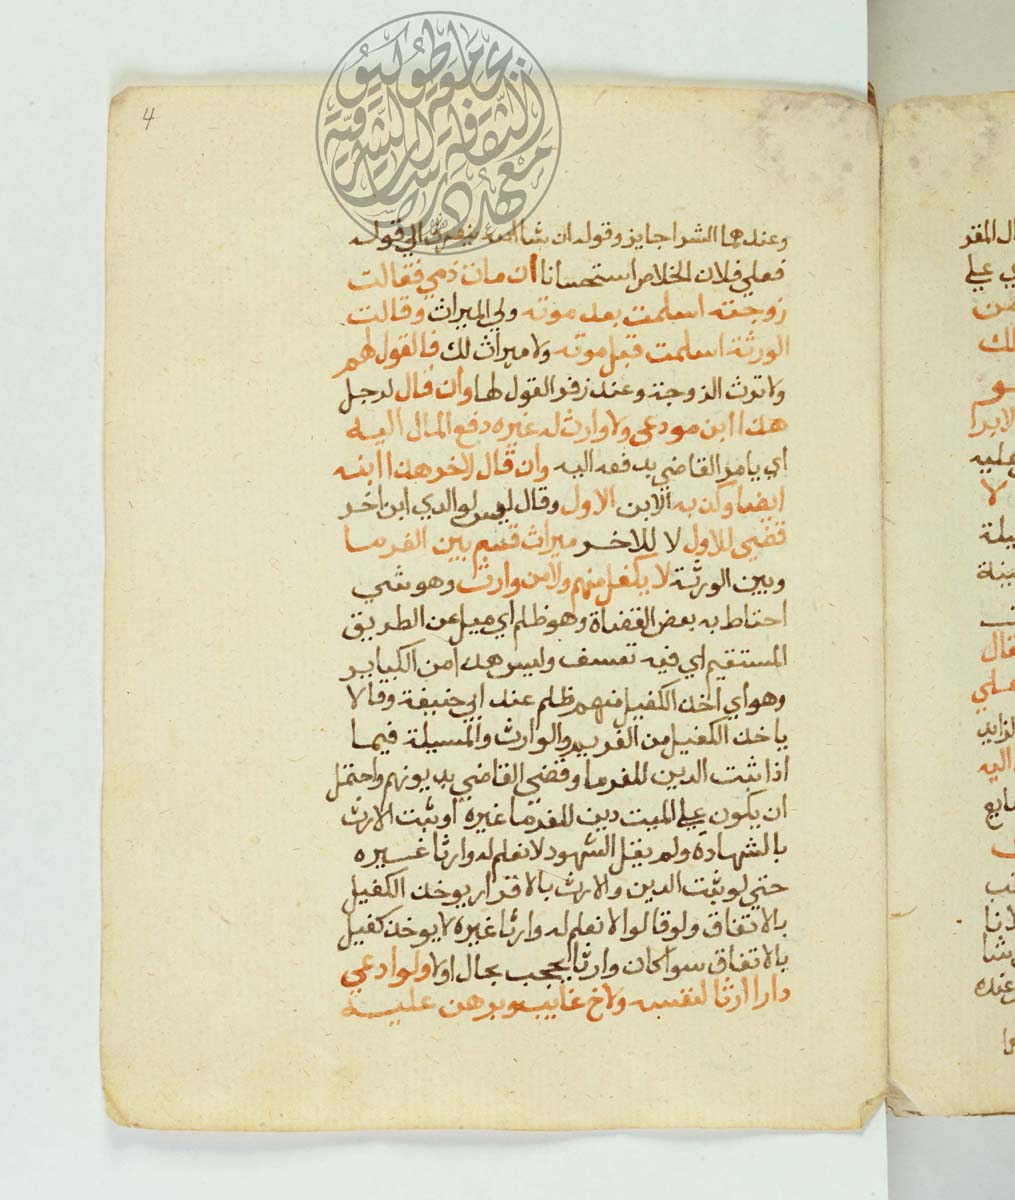 4
وعندهما الشراجايز وقوله ان شاالله ينصرف الي قوله
فعلي فلان الخلاص استحسانا ان مات ذمي فقالت
زوجته اسلمت بعد موته ولي الميراث وقالت
الورثة اسلمت قبل موته ولا ميراث لك فالقول لهم
ولا ترث الزوجة وعند زفر القول لها وان قال لرجل
هذا ابن مودعي ولا وارث له غيره دفع المال اليه
اي يامر القاضي بدفعه اليه وان قال لاخر هذا ابنه
ايضا وكذبه الابن الاول وقال ليس لوالدي ابن اخر
قضي للاول لا للاخر ميراث قسم بين الغرما
وبين الورثة لا يكفل منهم ولا من وارث وهو شي
احتاط به بعض القضاة وهو ظلم اي ميل عن الطريق
المستقيم اي فيه تعسف وليس هذا من الكباير
وهو اي اخذ الكفيل منهم ظلم عند ابي حنيفة وقالا
ياخذ الكفيل من الغريم والوارث والمسيلة فيما
اذا ثبت الدين للغرما وقضي القاضي بديونهم واحتمل
ان يكون علي الميت دين للغرما غيره او ثبت الارث
بالشهادة ولم يقل الشهود لا نعلم له وارثا غيره
حتي لو ثبت الدين والارث بالاقرار يوخذ الكفيل
بالاتفاق ولو قالوا لا نعلم له وارثا غيره لا يوخذ كفيل
بالاتفاق سوا كان وارثا يحجب بحال اولا ولو ادعي
دارا ارثا لنفسه ولاخ غايب وبرهن عليه